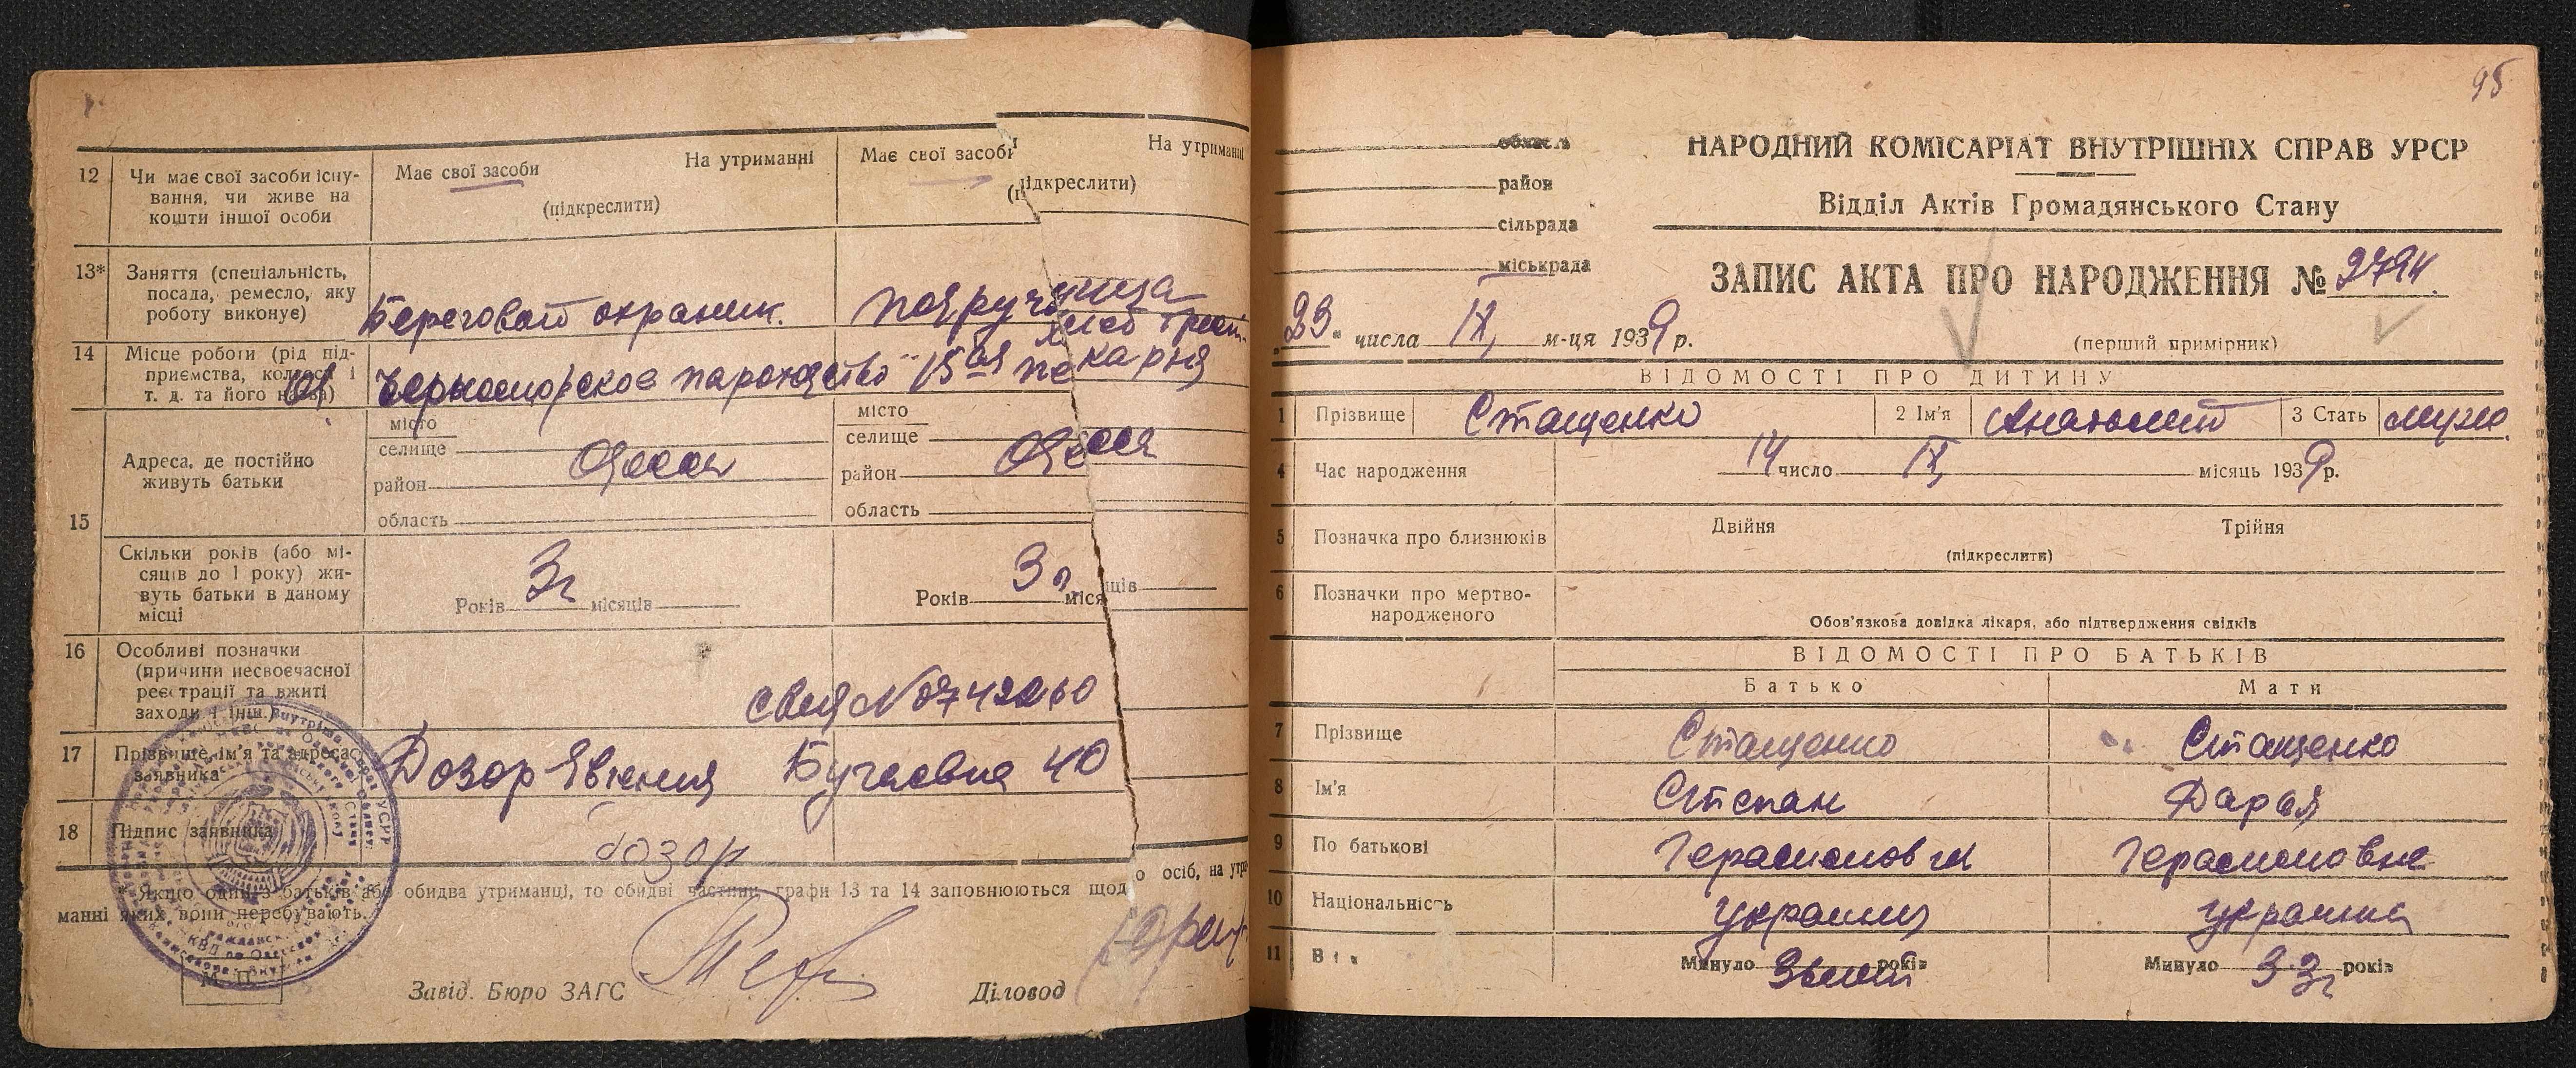 12 Чи має свої засоби існу-
вання, чи живе на
кошти іншої особи
Має свої засоби На утриманні
(підкреслити)
Має свої засоби На утриманні
(підкреслити)
13* Заняття (спеціальність,
посада, ремесло, яку
роботу виконує)
Береговой охраник.
14 Місце роботи (рід під-
приємства, колгоспа і
т. д. та його назва)
Черноморское пароходство
15ая пекарня
Адреса, де постійно
живуть батьки
місто
селище
район
область
Одесса
місто
селище
район
область
Одесса
15
Скільки років (або мі-
сяців до 1 року) жи-
вуть батьки в даному
місці
Років 3г місяців
Років 3г. місяців
16 Особливі позначки
(причини несвоєчасної
реєстрації та вжиті
заходи і інш.)
17 Прізвище, ім'я та адреса
заявника
Дозор Евгения 40
18 Підпис заявника
Дозор
* Якщо один з батьків або обидва утриманці, то обидві частини графи 13 та 14 заповнюються щодо осіб, на утри-
манні яких вони перебувають.
М. П.
Завід. Бюро ЗАГС
Діловод
95
область
район
сільрада
міськрада
НАРОДНИЙ КОМІСАРІАТ ВНУТРІШНІХ СПРАВ УРСР
Відділ Актів Громадянського Стану
ЗАПИС АКТА ПРО НАРОДЖЕННЯ № 2794
23 числа IX м-ця 1939 р.
(перший примірник)
ВІДОМОСТІ ПРО ДИТИНУ
1 Прізвище Стащенко 2 Ім'я Анатолий 3 Стать мужс.
4 Час народження 14 число IX місяць 1939 р.
5 Позначка про близнюків
Двійня Трійня
(підкреслити)
6 Позначки про мертво-
народженого
Обов'язкова довідка лікаря, або підтвердження свідків
ВІДОМОСТІ ПРО БАТЬКІВ
Батько Мати
7 Прізвище Стащенко Стащенко
8 Ім'я Степан Дарья
9 По батькові Герасимович Герасимовна
10 Національність украинец украинка
11 Вік Минуло років Минуло 33г років